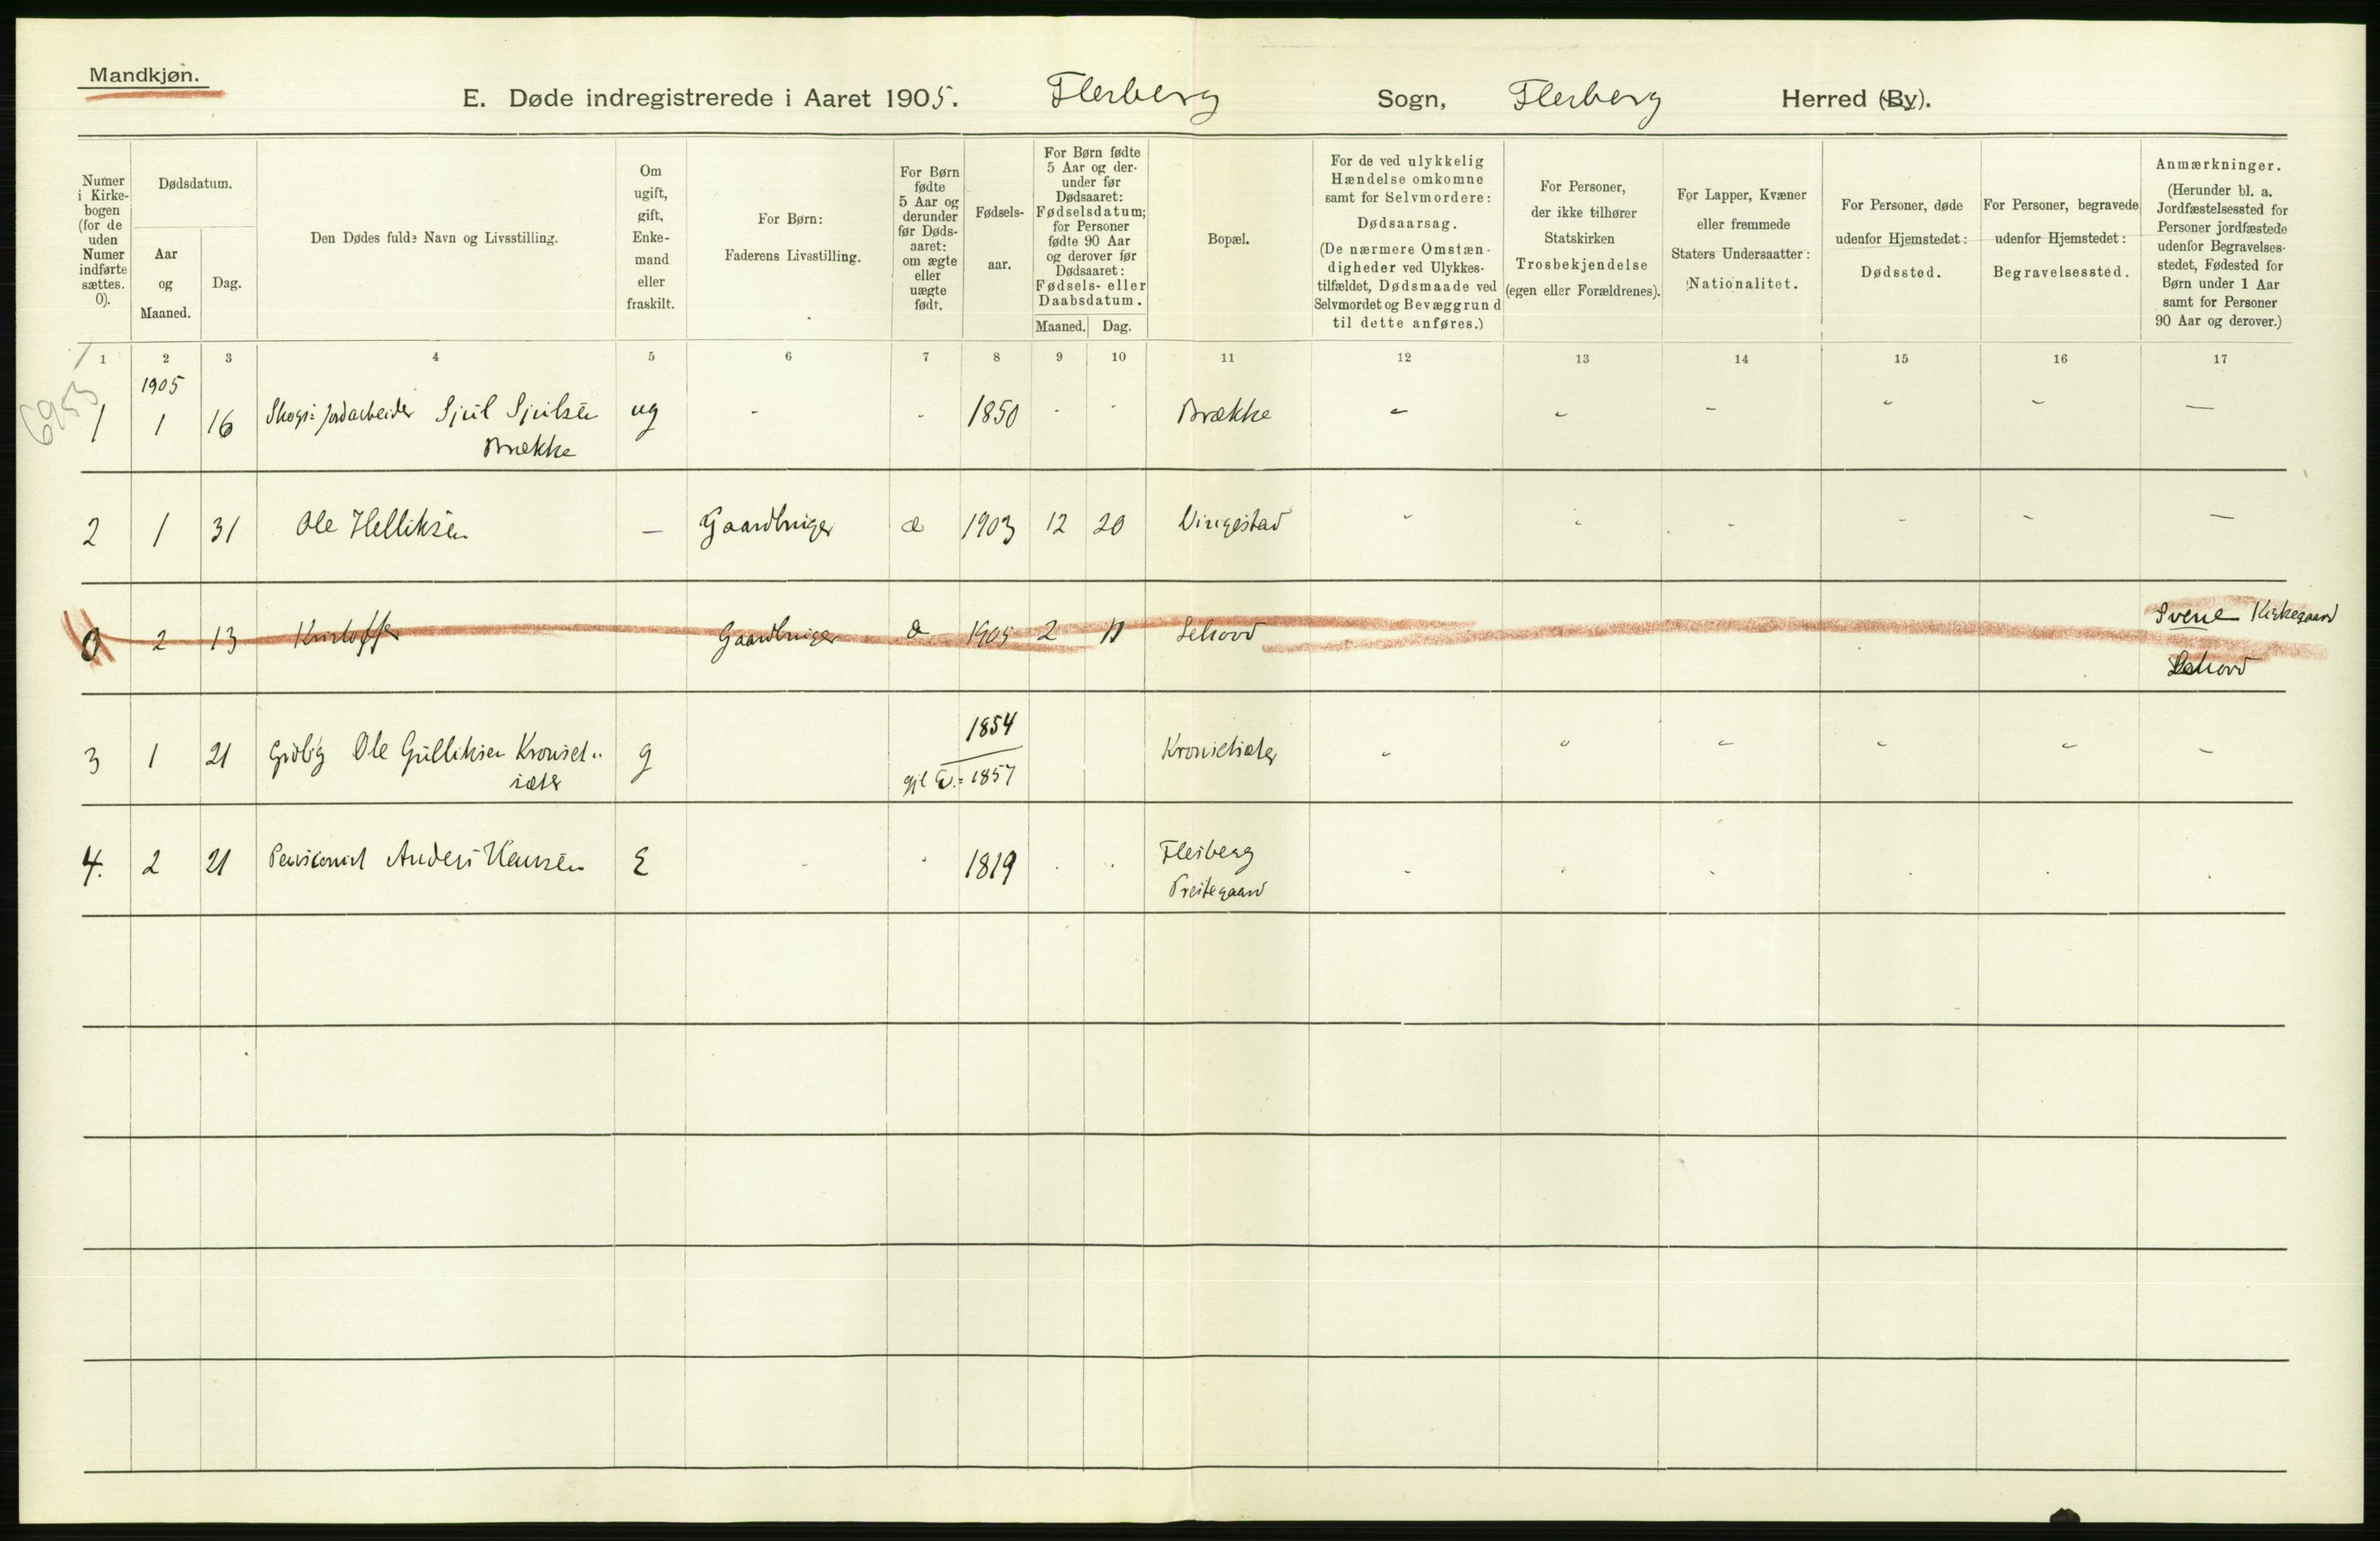 Mandkjøn.
E. Døde indregistrerede i Aaret 1905. Flesberg Sogn, Flesberg Herred (By).
Numer i Kirke-bogen (for de uden Numer indførte sættes. 0).
Dødsdatum.
Aar og Maaned.
Dag.
Den Dødes fulde Navn og Livsstilling.
Om ugift, gift, Enke-mand eller fraskilt.
For Børn: Faderens Livsstilling.
For Børn fødte 5 Aar og derunder før Døds-aaret: om ægte eller uægte født.
Fødsels-aar.
For Børn fødte 5 Aar og der-under før Dødsaaret: Fødselsdatum; for Personer fødte 90 Aar og derover før Dødsaaret: Fødsels- eller Daabsdatum.
Maaned. Dag.
Bopæl.
For de ved ulykkelig Hændelse omkomne samt for Selvmordere: Dødsaarsag. (De nærmere Omstæn-digheder ved Ulykkes-tilfældet, Dødsmaade ved Selvmordet og Bevæggrund til dette anføres.)
For Personer, der ikke tilhører Statskirken Trosbekjendelse (egen eller Forældrenes).
For Lapper, Kvæner eller fremmede Staters Undersaatter: Nationalitet.
For Personer, døde udenfor Hjemstedet: Dødssted.
For Personer, begravede udenfor Hjemstedet: Begravelsessted.
Anmærkninger. (Herunder bl. a. Jordfæstelsessted for Personer jordfæstede udenfor Begravelses-stedet, Fødested for Børn under 1 Aar samt for Personer 90 Aar og derover.)
1 2 3 4 5 6 7 8 9 10 11 12 13 14 15 16 17
6953
1905
1 1 16 Skogs: Jordarbeider Sjul Sjulsen ug - - 1850 - - Brække - - - - - —
Brække
2 1 31 Ole Helliksen — Gaardbruger æ 1903 12 20 Vingestad - - - - - —
0 2 13 Kristoffer Gaardbruger æ 1905 2 11 Lehovd Svene Kirkegaard
Lehovd
3 1 21 Grdbrg Ole Gulliksen Krouset- g 1854 Krousetsæter - - - - - -
sæter gjl E.: 1857
4. 2 21 Pensionist Anders Hansen E - - 1819 - - Flesberg
Prestegaard